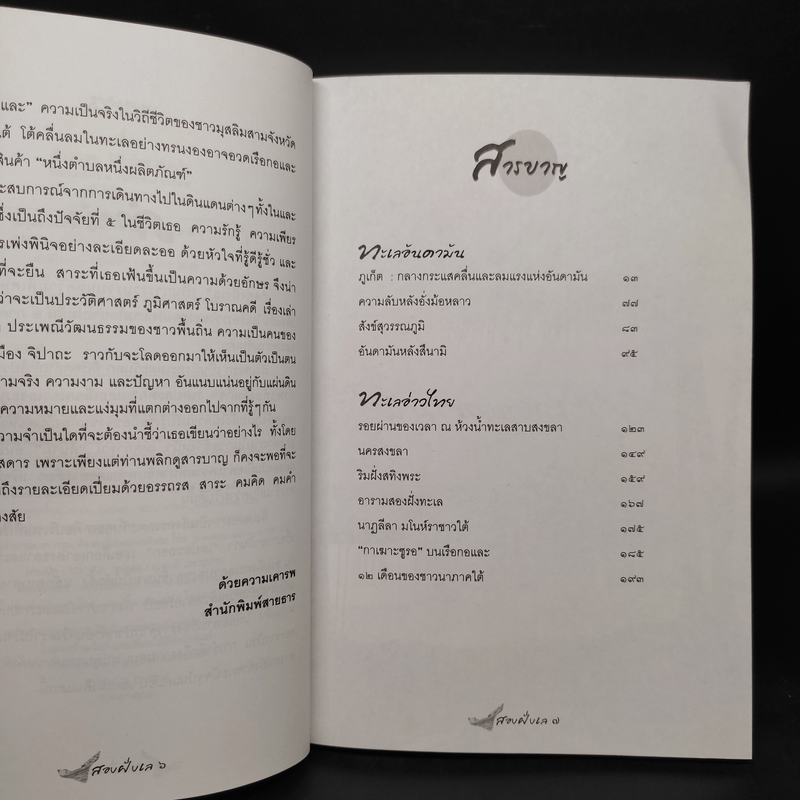 และ” ความเป็นจริงในวิถีชีวิตของชาวมุสลิมสามจังหวัด
ต้ โต้คลื่นลมในทะเลอย่างทรนงองอาจอวดเรือกอและ
สินค้า “หนึ่งตำบลหนึ่งผลิตภัณฑ์”
ะสบการณ์จากการเดินทางไปในดินแดนต่างๆทั้งในและ
ซึ่งเป็นถึงปัจจัยที่ ๕ ในชีวิตเธอ ความรักรู้ ความเพียร
รเพ่งพินิจอย่างละเอียดละออ ด้วยหัวใจที่รู้ดีรู้ชั่ว และ
ที่จะยืน สาระที่เธอเฟ้นขึ้นเป็นความด้วยอักษร จึงน่า
ว่าจะเป็นประวัติศาสตร์ ภูมิศาสตร์ โบราณคดี เรื่องเล่า
ประเพณีวัฒนธรรมของชาวพื้นถิ่น ความเป็นคนของ
มือง จิปาถะ ราวกับจะโลดออกมาให้เห็นเป็นตัวเป็นตน
ามจริง ความงาม และปัญหา อันแนบแน่นอยู่กับแผ่นดิน
ความหมายและแง่มุมที่แตกต่างออกไปจากที่รู้ๆกัน
วามจำเป็นใดที่จะต้องนำชี้ว่าเธอเขียนว่าอย่างไร ทั้งโดย
สดาร เพราะเพียงแต่ท่านพลิกดูสารบาญ ก็คงจะพอที่จะ
ถึงรายละเอียดเปี่ยมด้วยอรรถรส สาระ คมคิด คมคำ
งสัย
ด้วยความเคารพ
สำนักพิมพ์สายธาร
สองฝั่งเล ๖
สารบาญ
ทะเลอันดามัน
ภูเก็ต : กลางกระแสคลื่นและลมแรงแห่งอันดามัน ๑๓
ความลับหลังอั่งม้อหลาว ๗๗
สังข์สุวรรณภูมิ ๘๓
อันดามันหลังสึนามิ ๙๕
ทะเลอ่าวไทย
รอยผ่านของเวลา ณ ห้วงน้ำทะเลสาบสงขลา ๑๒๓
นครสงขลา ๑๔๙
ริมฝั่งสทิงพระ ๑๕๙
อารามสองฝั่งทะเล ๑๖๗
นาฏลีลา มโนห์ราชาวใต้ ๑๗๕
“กาเฆาะซูรอ” บนเรือกอและ ๑๘๕
๑๒ เดือนของชาวนาภาคใต้ ๑๙๓
สองฝั่งเล ๗